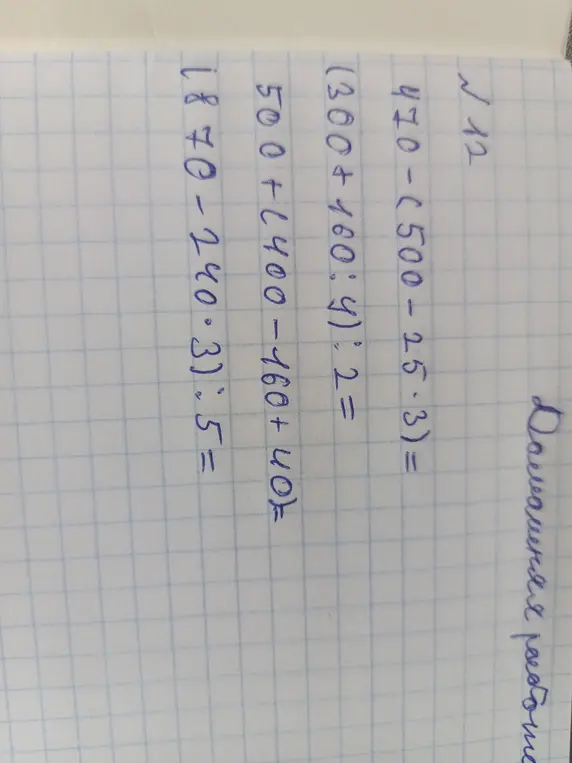 Домашняя работа
№ 12
470-(500-25·3)=
(300+160:4):2=
500+(400-160+40)=
(870-240·3):5=